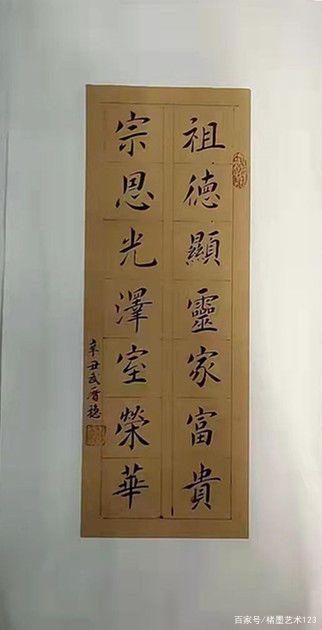 祖徳顯靈家富貴
宗恩光澤室榮華
辛丑武屠龍
百家号/楮墨艺术123